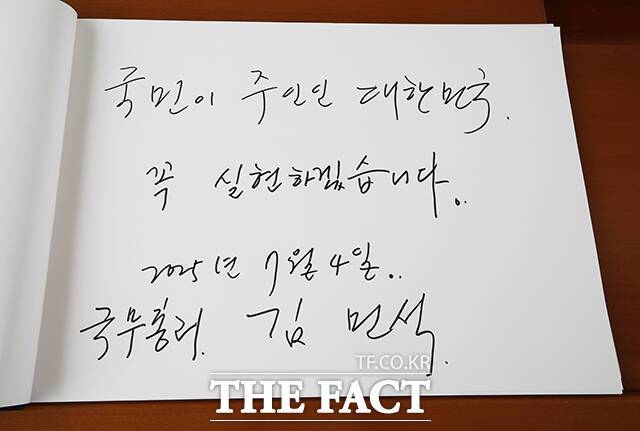 국민이 주인인 대한민국.
꼭 실현하겠습니다.
2025년 7월 4일..
국무총리. 김민석.
TF.CO.KR
THE FACT